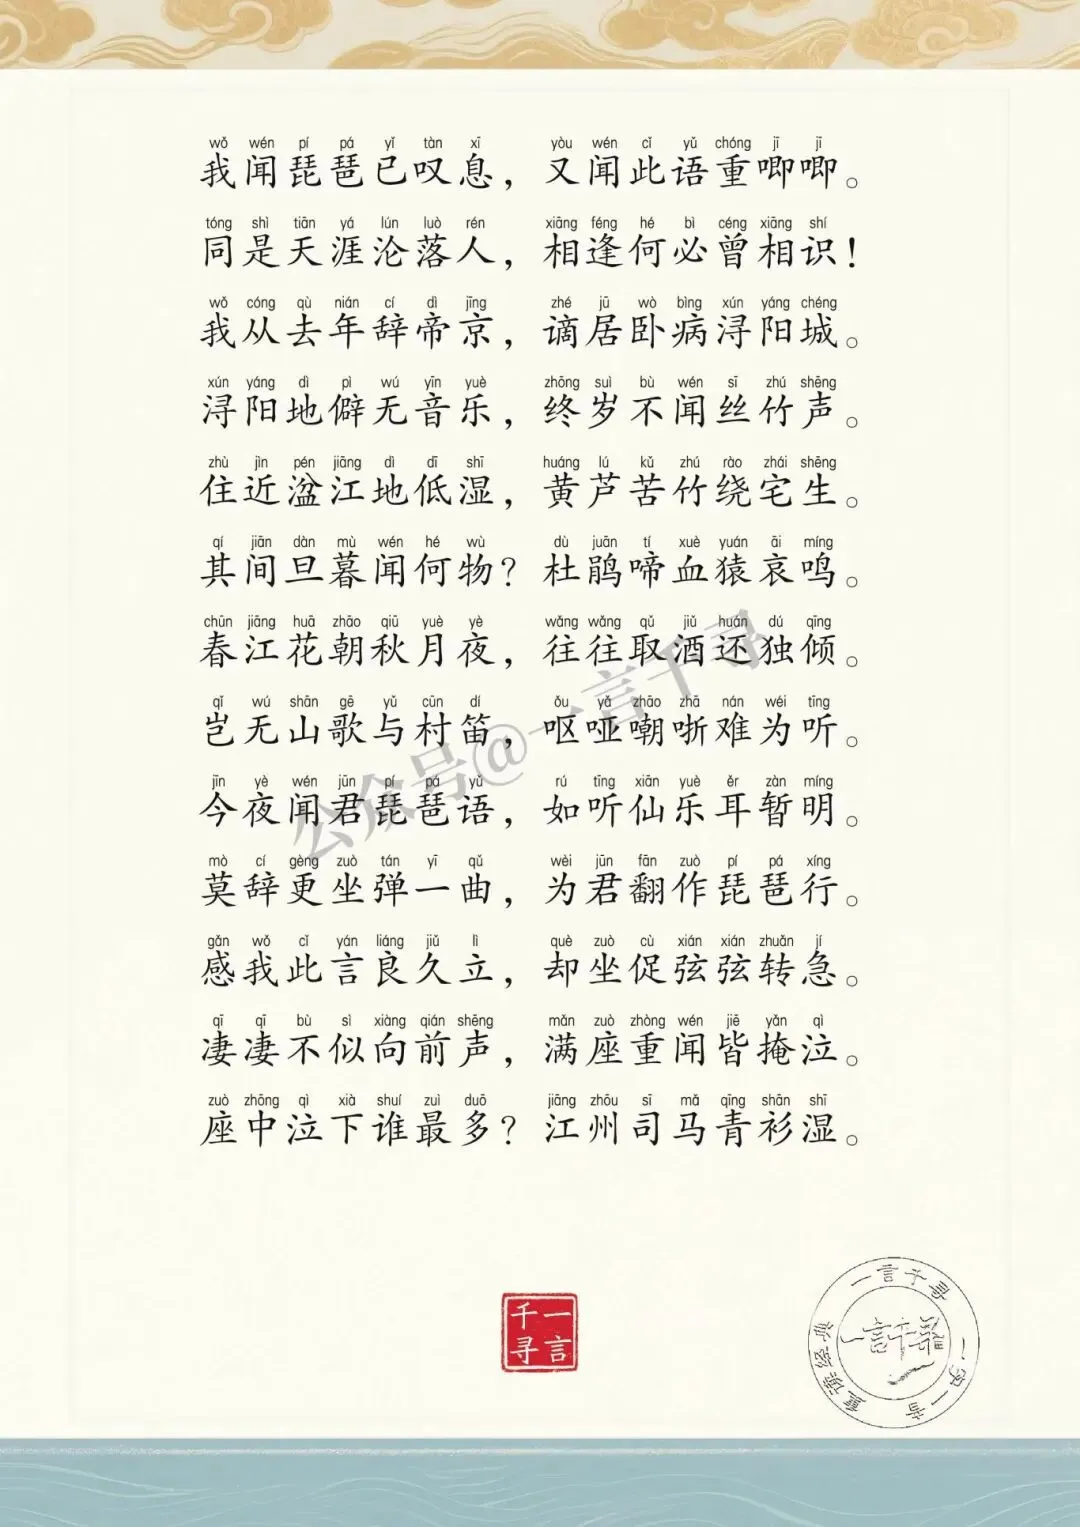 wǒ wén pí pá yǐ tàn xī yòu wén cǐ yǔ chóng jī jī
我闻琵琶已叹息，又闻此语重唧唧。
tóng shì tiān yá lún luò rén xiāng féng hé bì céng xiāng shí
同是天涯沦落人，相逢何必曾相识！
wǒ cóng qù nián cí dì jīng zhé jū wò bìng xún yáng chéng
我从去年辞帝京，谪居卧病浔阳城。
xún yáng dì pì wú yīn yuè zhōng suì bù wén sī zhú shēng
浔阳地僻无音乐，终岁不闻丝竹声。
zhù jìn pén jiāng dì dī shī huáng lú kǔ zhú rào zhái shēng
住近湓江地低湿，黄芦苦竹绕宅生。
qí jiān dàn mù wén hé wù dù juān tí xuè yuán āi míng
其间旦暮闻何物？杜鹃啼血猿哀鸣。
chūn jiāng huā zhāo qiū yuè yè wǎng wǎng qǔ jiǔ huán dú qīng
春江花朝秋月夜，往往取酒还独倾。
qǐ wú shān gē yǔ cūn dí ǒu yǎ zhāo zhā nán wéi tīng
岂无山歌与村笛，呕哑嘲哳难为听。
jīn yè wén jūn pí pá yǔ rú tīng xiān yuè ěr zàn míng
今夜闻君琵琶语，如听仙乐耳暂明。
mò cí gèng zuò tán yī qǔ wèi jūn fān zuò pí pá xíng
莫辞更坐弹一曲，为君翻作琵琶行。
gǎn wǒ cǐ yán liáng jiǔ lì què zuò cù xián xián zhuǎn jí
感我此言良久立，却坐促弦弦转急。
qī qī bù sì xiàng qián shēng mǎn zuò zhòng wén jiē yǎn qì
凄凄不似向前声，满座重闻皆掩泣。
zuò zhōng qì xià shuí zuì duō jiāng zhōu sī mǎ qīng shān shī
座中泣下谁最多？江州司马青衫湿。
公众号@一言千寻
一言千寻
一言千寻
一字一音
重读经典
一言千寻